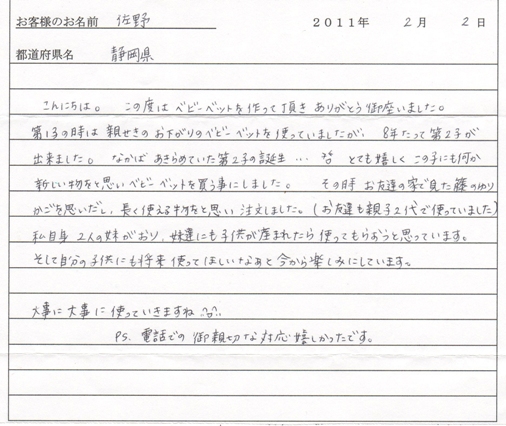 お客様のお名前 佐野 2011年 2月 2日
都道府県名 静岡県
こんにちは。 この度は ベビーベットを作って頂き ありがとう御座いました。
第1子の時は 親せきの お下がりのベビーベットを使っていましたが、 8年たって第2子が
出来ました。 なかば あきらめていた 第2子の誕生… とても嬉しく この子にも何か
新しい物をと思いベビーベットを買う事にしました。 その時 お友達の家で見た籐のゆり
かごを思いだし、長く使える物をと思い 注文しました。(お友達も親子2代で使っていました)
私自身 2人の妹がおり、妹達にも子供が産まれたら 使ってもらおうと思っています。
そして自分の子供にも将来 使ってほしいなあと 今から楽しみにしています。
大事に 大事に 使っていきますね ^^
PS. 電話での 御親切な対応 嬉しかったです。